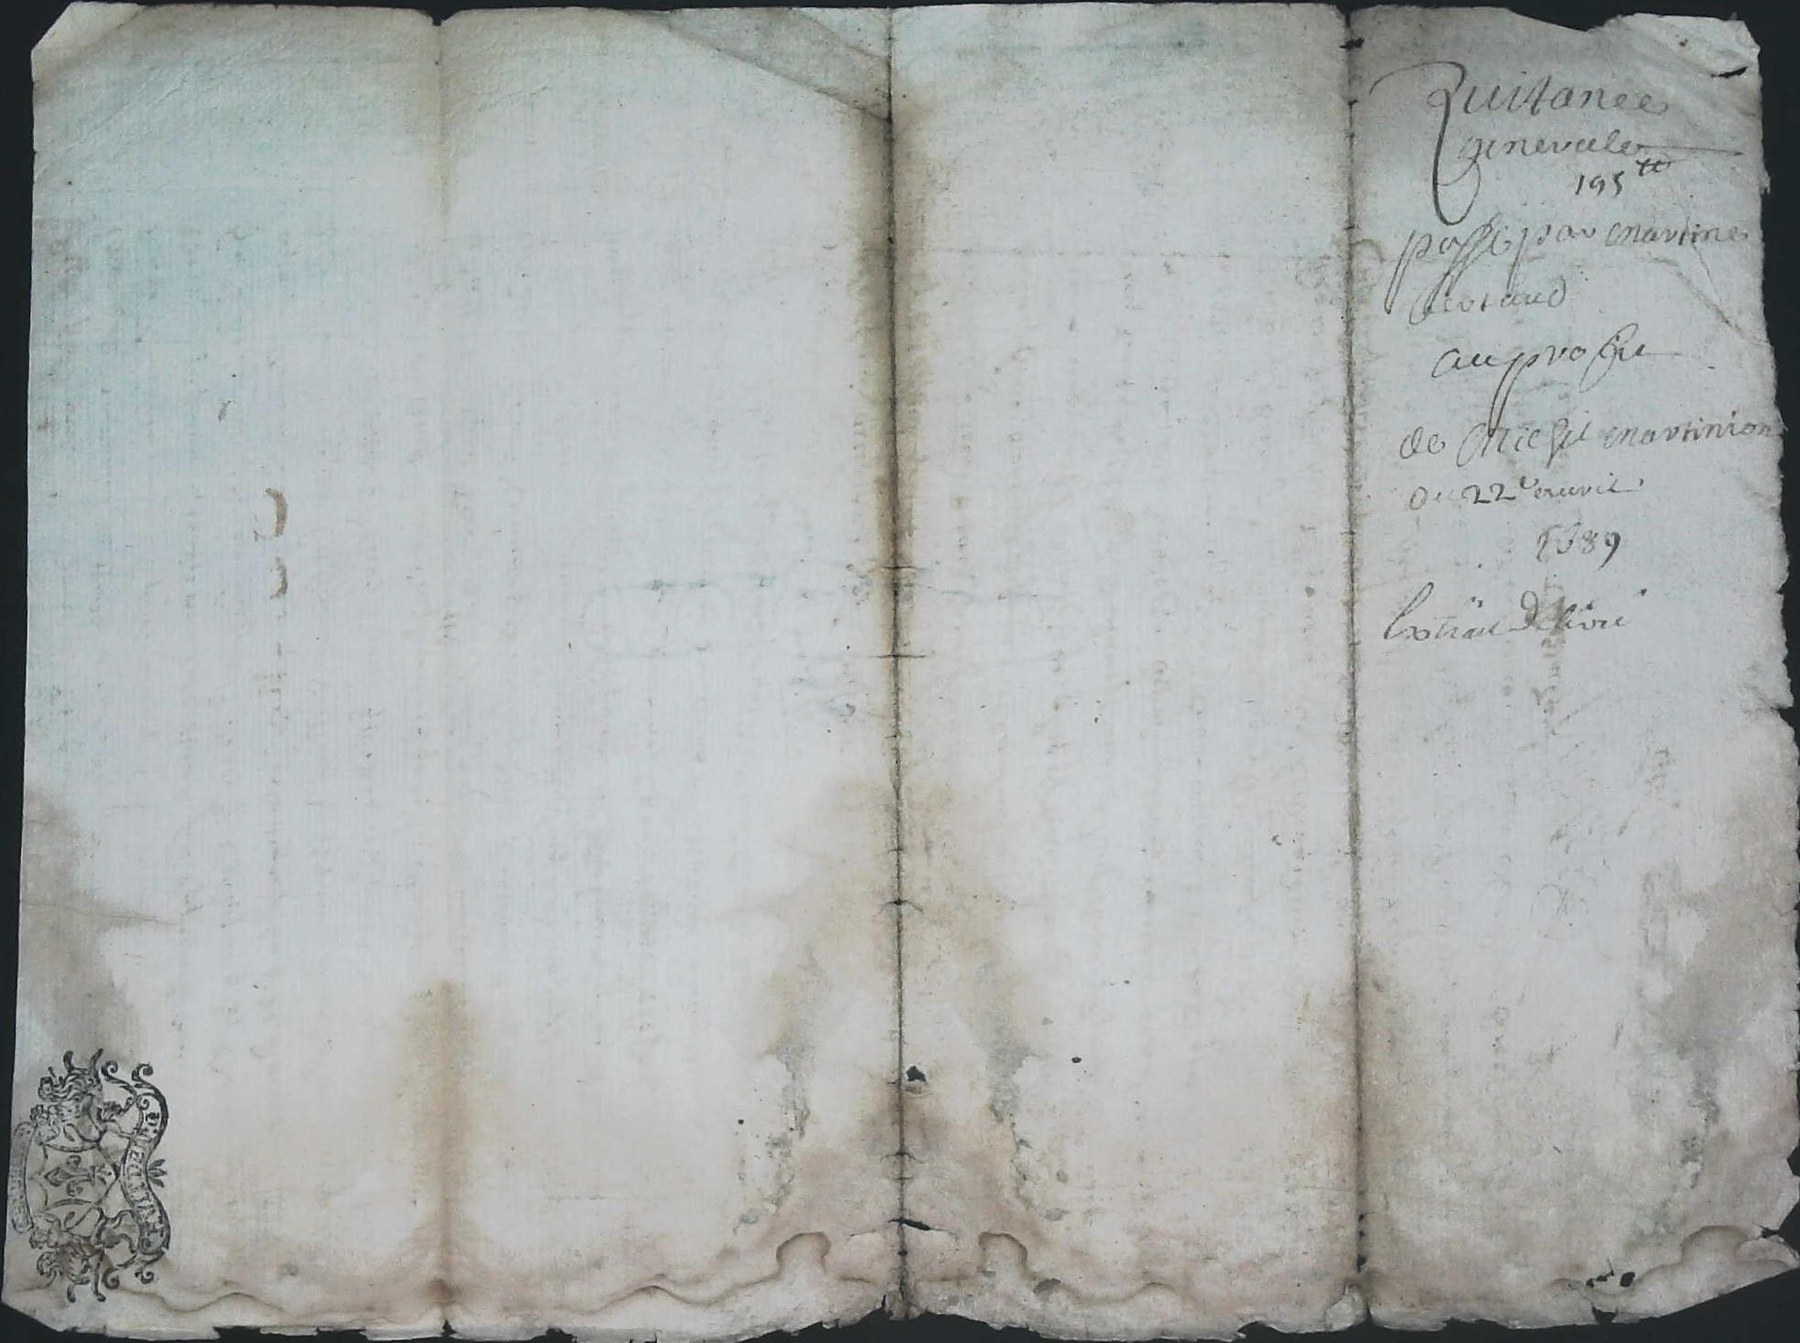 Quitance
generale
195 tt
passé par martine
au profit
de Michel martinion
du 22e auvril
1689
Extrait Delivré